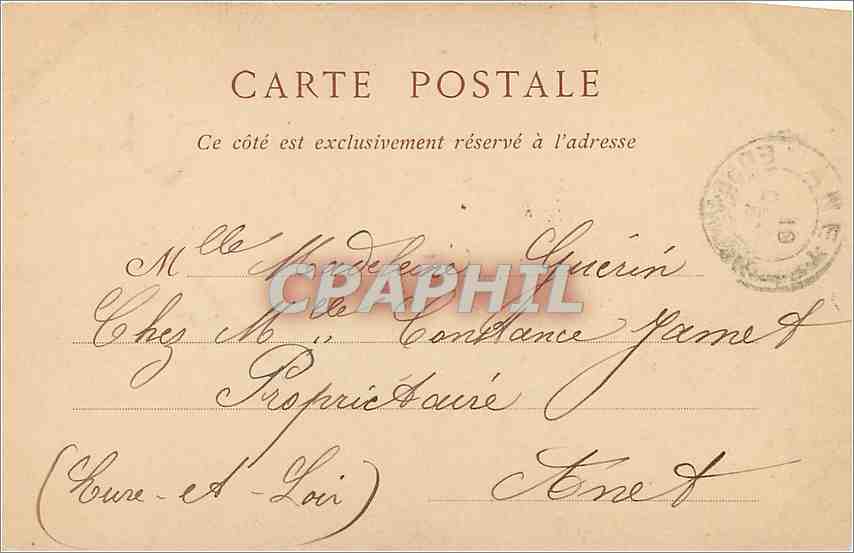 CARTE POSTALE
Ce côté est exclusivement réservé à l'adresse
Mlle Madeleine Guérin
CPAPHIL
Chez Mlle Constance Jamet
Propriétaire
(Eure-et-Loir) Anet